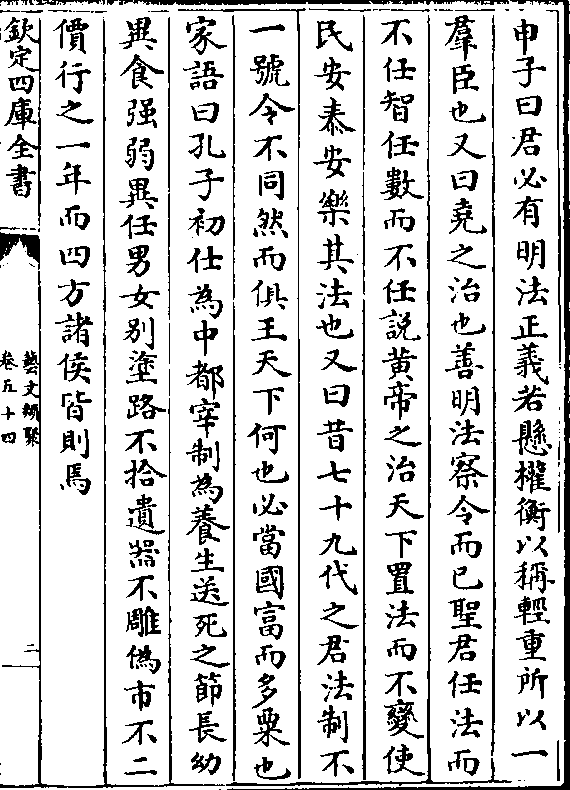 申子曰君必有明法正義若懸權衡以稱輕重所以一
羣臣也又曰堯之治也善明法察令而已聖君任法而
不任智任數而不任説黄帝之治天下置法而不變使
民安泰安樂其法也又曰昔七十九代之君法制不
一號令不同然而俱王天下何也必當國富而多粟也
家語曰孔子初仕為中都宰制為養生送死之節長幼
異食强弱異任男女别塗路不拾遺器不雕偽市不二
價行之一年而四方諸侯皆則焉
欽定四庫全書
藝文類聚
卷五十四
二